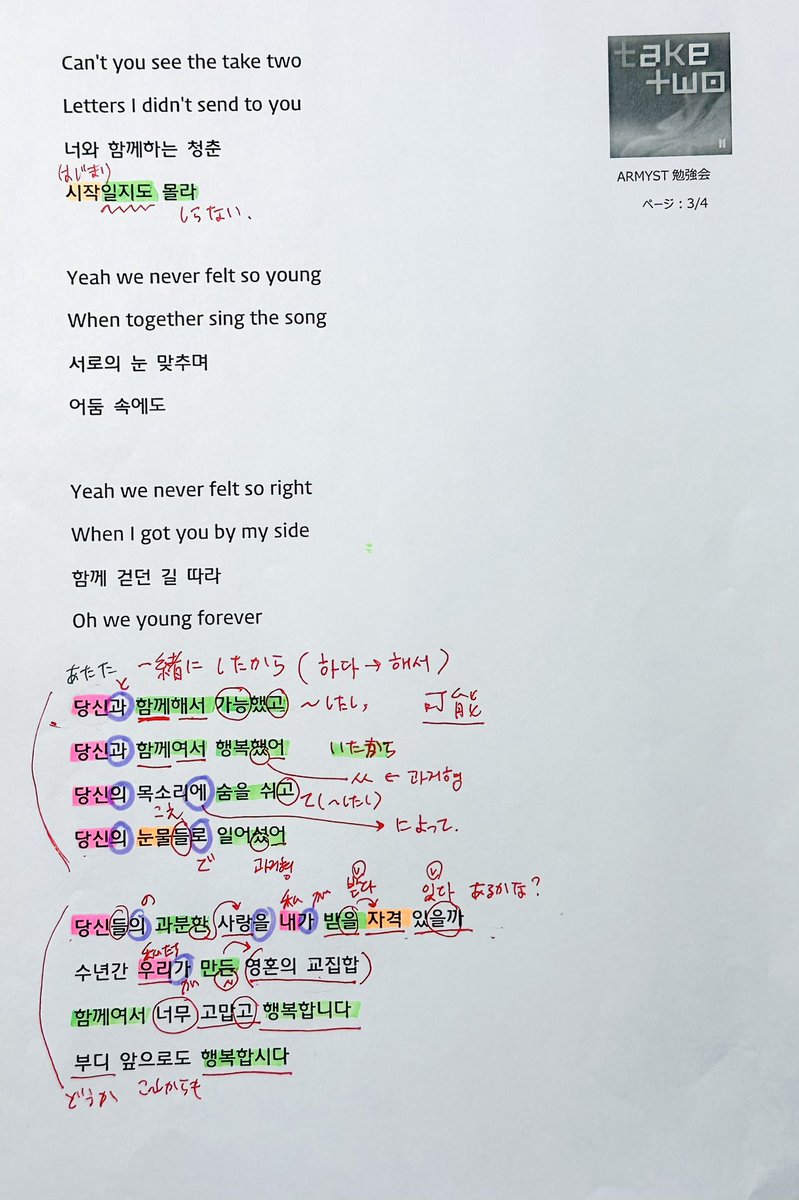 Can't you see the take two
Letters I didn't send to you
너와 함께하는 청춘
(はじまり)
시작일지도 몰라
しらない.
take
two
ARMYST 勉強会
ページ：3/4
Yeah we never felt so young
When together sing the song
서로의 눈 맞추며
어둠 속에도
Yeah we never felt so right
When I got you by my side
함께 걷던 길 따라
Oh we young forever
あなた と 一緒に したから (하다→해서)
당신과 함께해서 가능했고 〜したし, 可能
당신과 함께여서 행복했어 いたから
ㅆ ← 과거형
당신의 목소리에 숨을 쉬고 て(〜したし)
こえ によって.
당신의 눈물들로 일어섰어
で 과거형
の 私 が 받다 있다 あるかな?
당신들의 과분함 사랑을 내가 받을 자격 있을까
私たち
수년간 우리가 만든 (영혼의 교집합)
が
함께여서 너무 고맙고 행복합니다
부디 앞으로도 행복합시다
どうか これからも